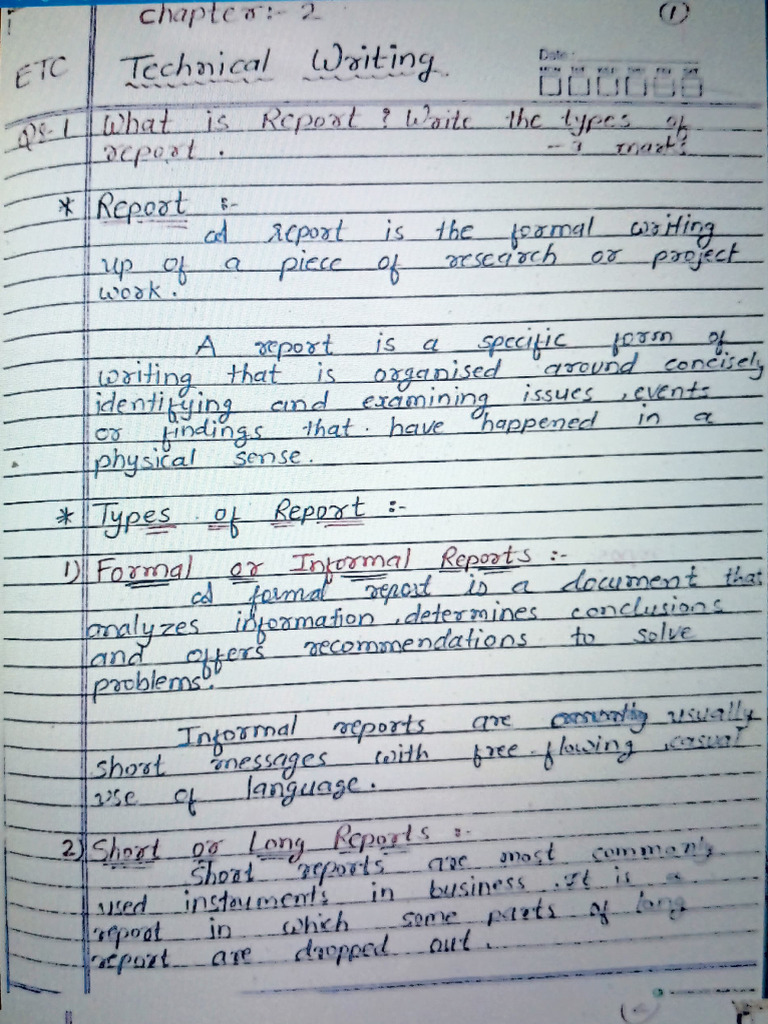 Chapter:- 2
(1)
ETC Technical Writing
Date:
Qs-1 What is Report? Write the types of
report. - 7 marks
* Report :-
A report is the formal writing
up of a piece of research or project
work.
A report is a specific form of
writing that is organised around concisely
identifying and examining issues, events
or findings that have happened in a
physical sense.
* Types of Report :-
1) Formal or Informal Reports :-
A formal report is a document that
analyzes information, determines conclusions
and offers recommendations to solve
problems.
Informal reports are usually
short messages with free-flowing, casual
use of language.
2) Short or Long Reports :-
Short reports are most commonly
used instruments in business. It is a
report in which some parts of long
report are dropped out.